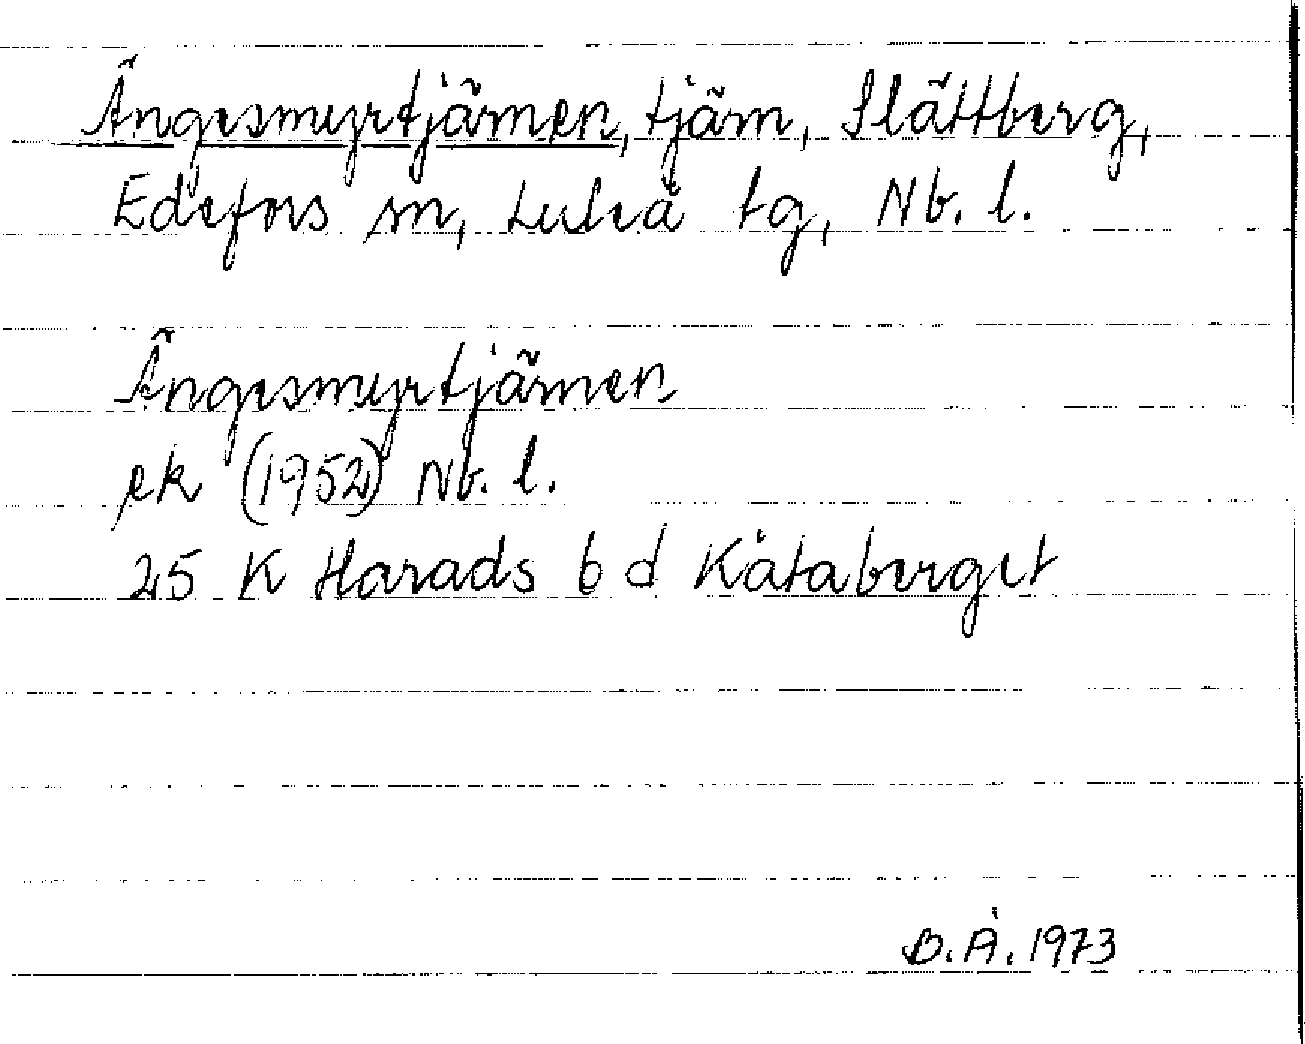 Ängesmyrtjärnen, tjärn, Slättberg,
Edefors sn, Luleå tg, Nb. l.
Ängesmyrtjärnen
ek (1952) Nb. l.
25 K Harads b d Kåtaberget
B.Å. 1973